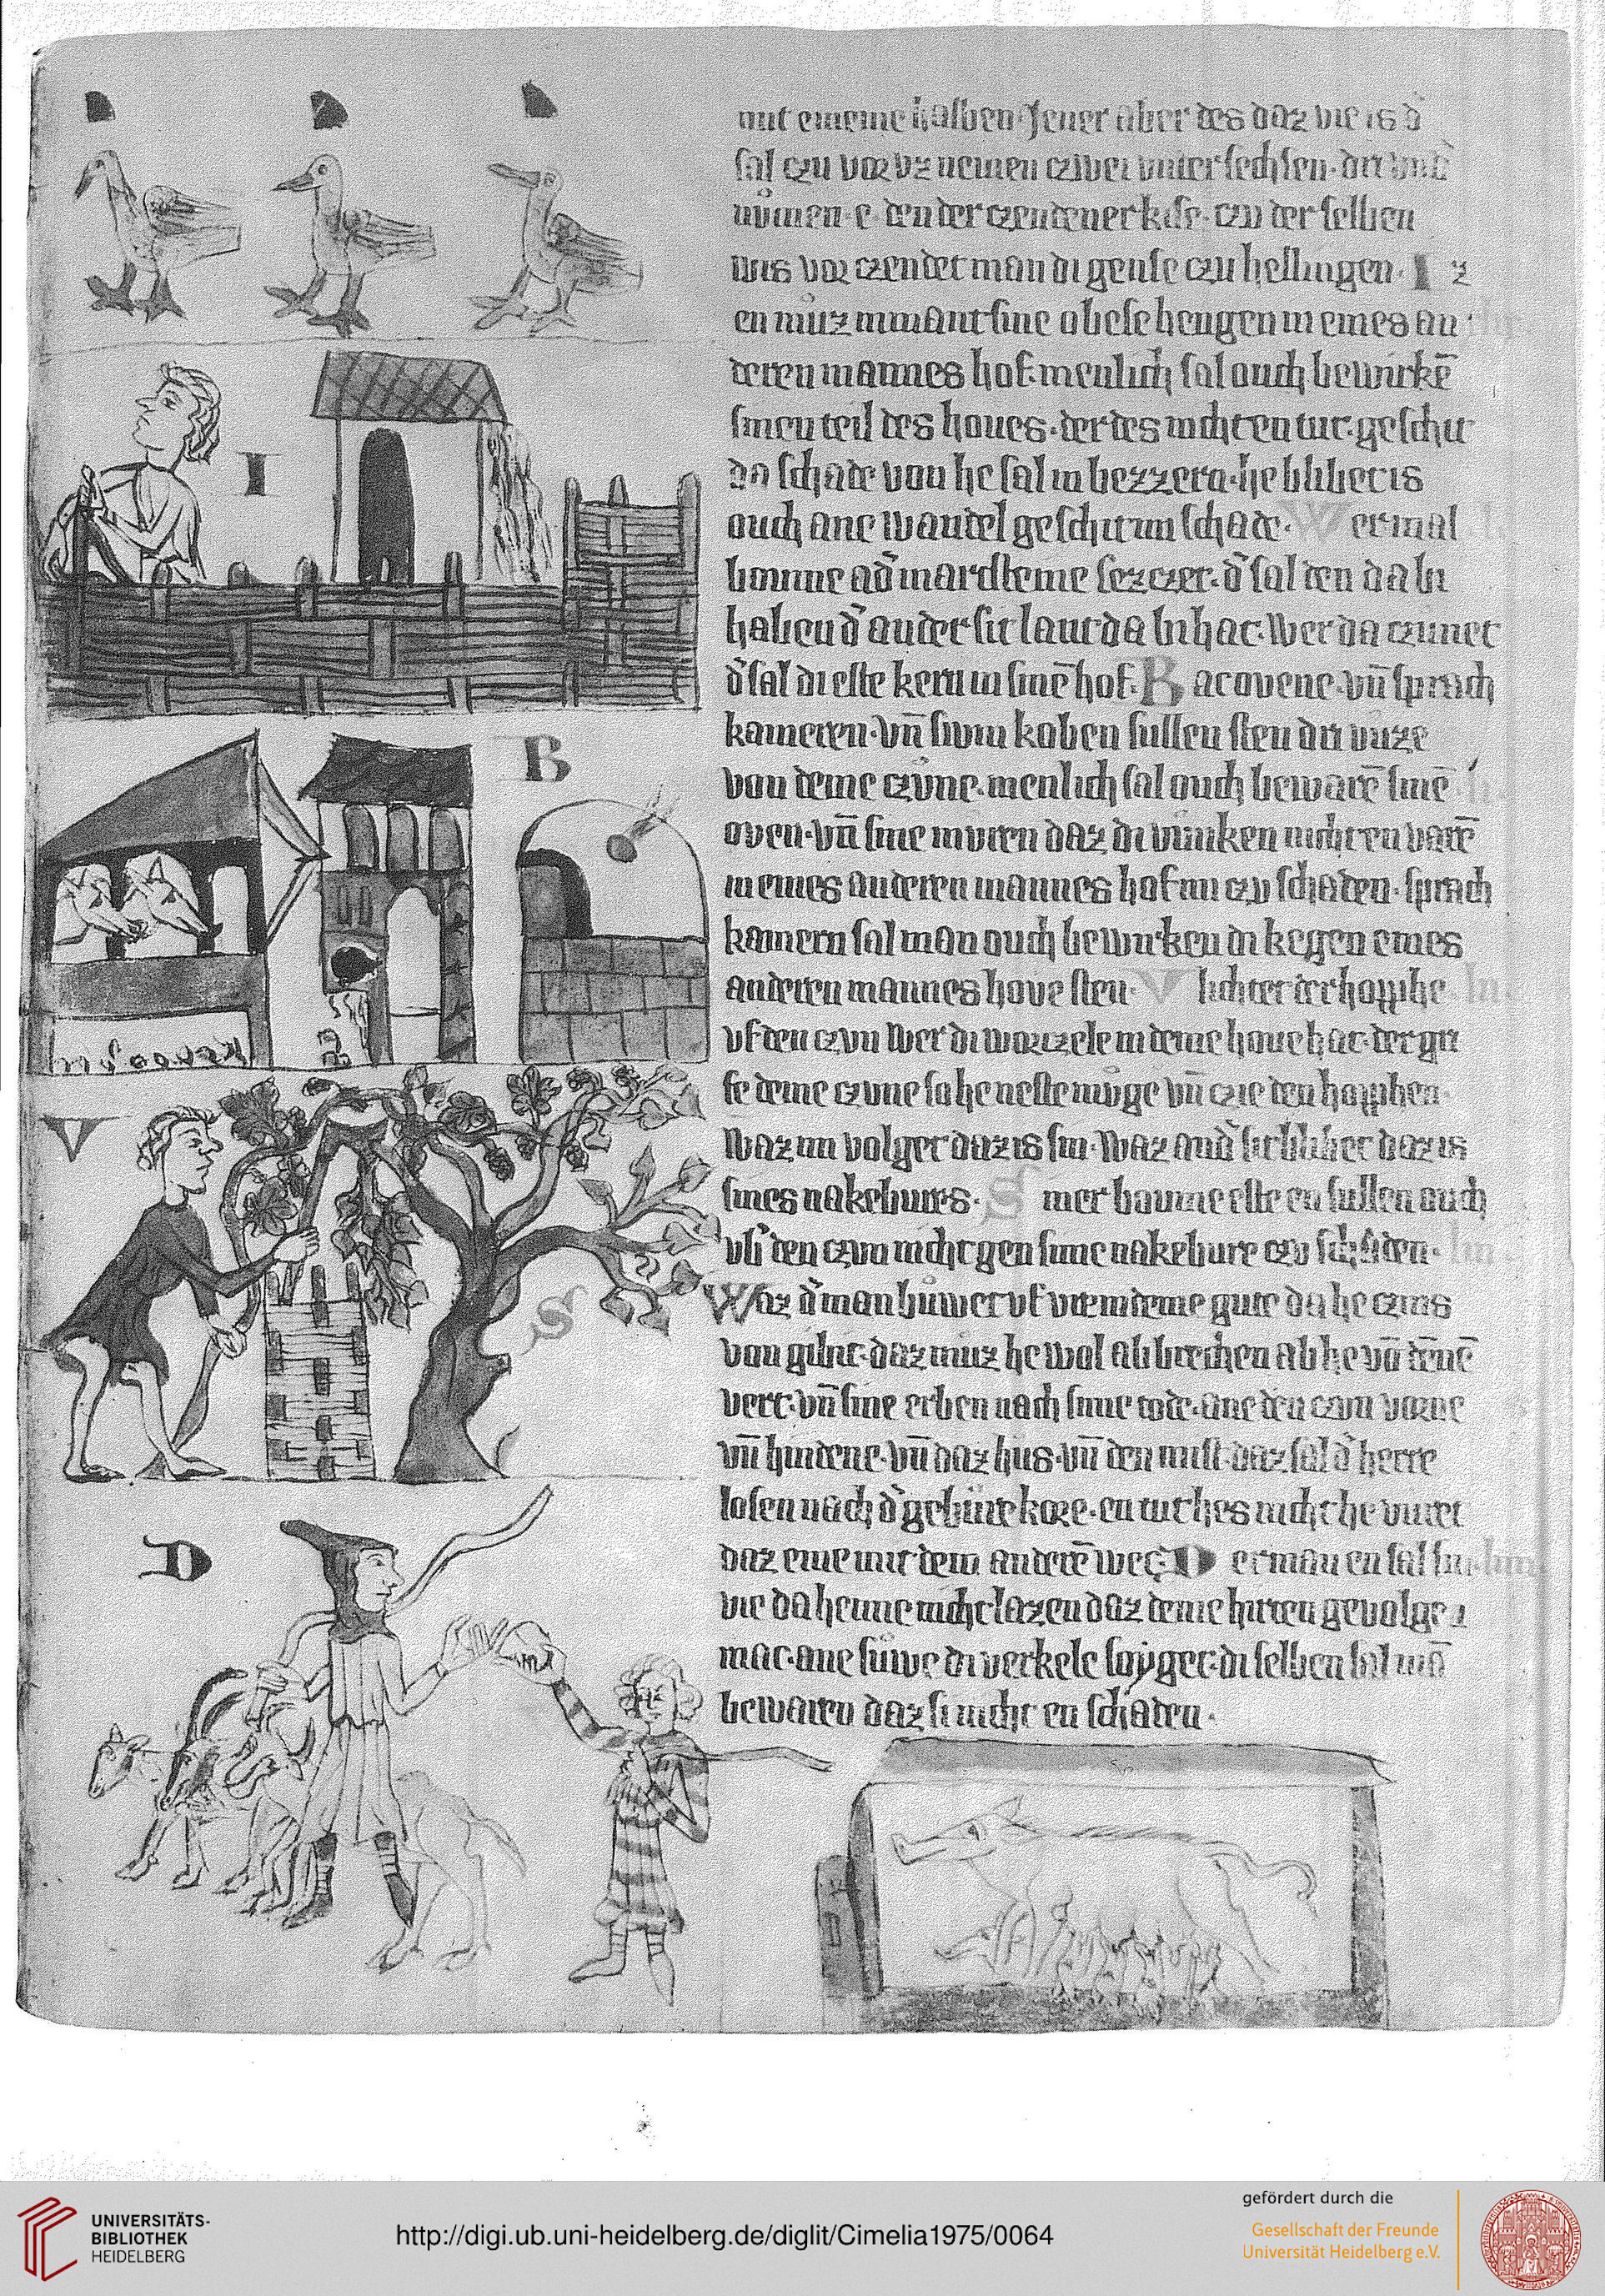 mit eineme halben. Jener aber des daz vie is d'
sal czu vor vz nemen czwei vnter sechsen. dri vnd'
nůmen. e den der czendener kise. czu der selben
wis vor czendet man di gense czu hellingen. I z
en můz nimant sine obese hengen in eines an
deren mannes hof. menlich sal ouch bewirkē
sinen teil des houes. der des nicht en tut. geschit
da schade von he sal in bezzern. he blibet is
ouch ane wandel geschit im schade. W er mal
boume ad' marcsteine sezczet. d' sal den da bi
haben d' ander sit lant da bi hat. Wer da czunet
d' sal di este keren in sinē hof. B acovene. vn̄ sprach
kameren. vn̄ swin koben sullen sten dri vuze
von deme czůne. menlich sal ouch bewarē sinē
oven. vn̄ sine muren daz di vunken nicht en varē
in eines anderen mannes hof im czu schaden. sprach
kamern sal man ouch bewirken di kegen eines
anderen mannes hove sten. V lichtet der hopphe
vf den czun wer di worczele in deme houe hat. der gri
fe deme czune so he neste můge vn̄ czie den hopphen.
Waz im volget daz is sin. Waz and' sit blibet daz is
sines nakebures. S iner boume este en sullen ouch
vb' den czun nicht gen sime nakebure czu schaden.
Waz d' man bůwet vf vremdeme gute da he czins
von gibit. daz můz he wol abbrechen ab he vō dēnē
vert. vn̄ sine erben nach sime tode. ane den czun vorne
vn̄ hindene. vn̄ daz hus. vn̄ den mist. daz sal d' herre
losen nach d' gebure kore. en tut hes nicht he vuret
daz eine mit dem anderē wec. D er man en sal sin
vie da heime nicht lazen daz deme hirten gevolge
mac. ane sůwe di verkele soyget. di selben sal mā
bewaren daz si nicht en schaden.
I
B
V
S
D
UNIVERSITÄTS-
BIBLIOTHEK
HEIDELBERG
http://digi.ub.uni-heidelberg.de/diglit/Cimelia1975/0064
gefördert durch die
Gesellschaft der Freunde
Universität Heidelberg e.V.